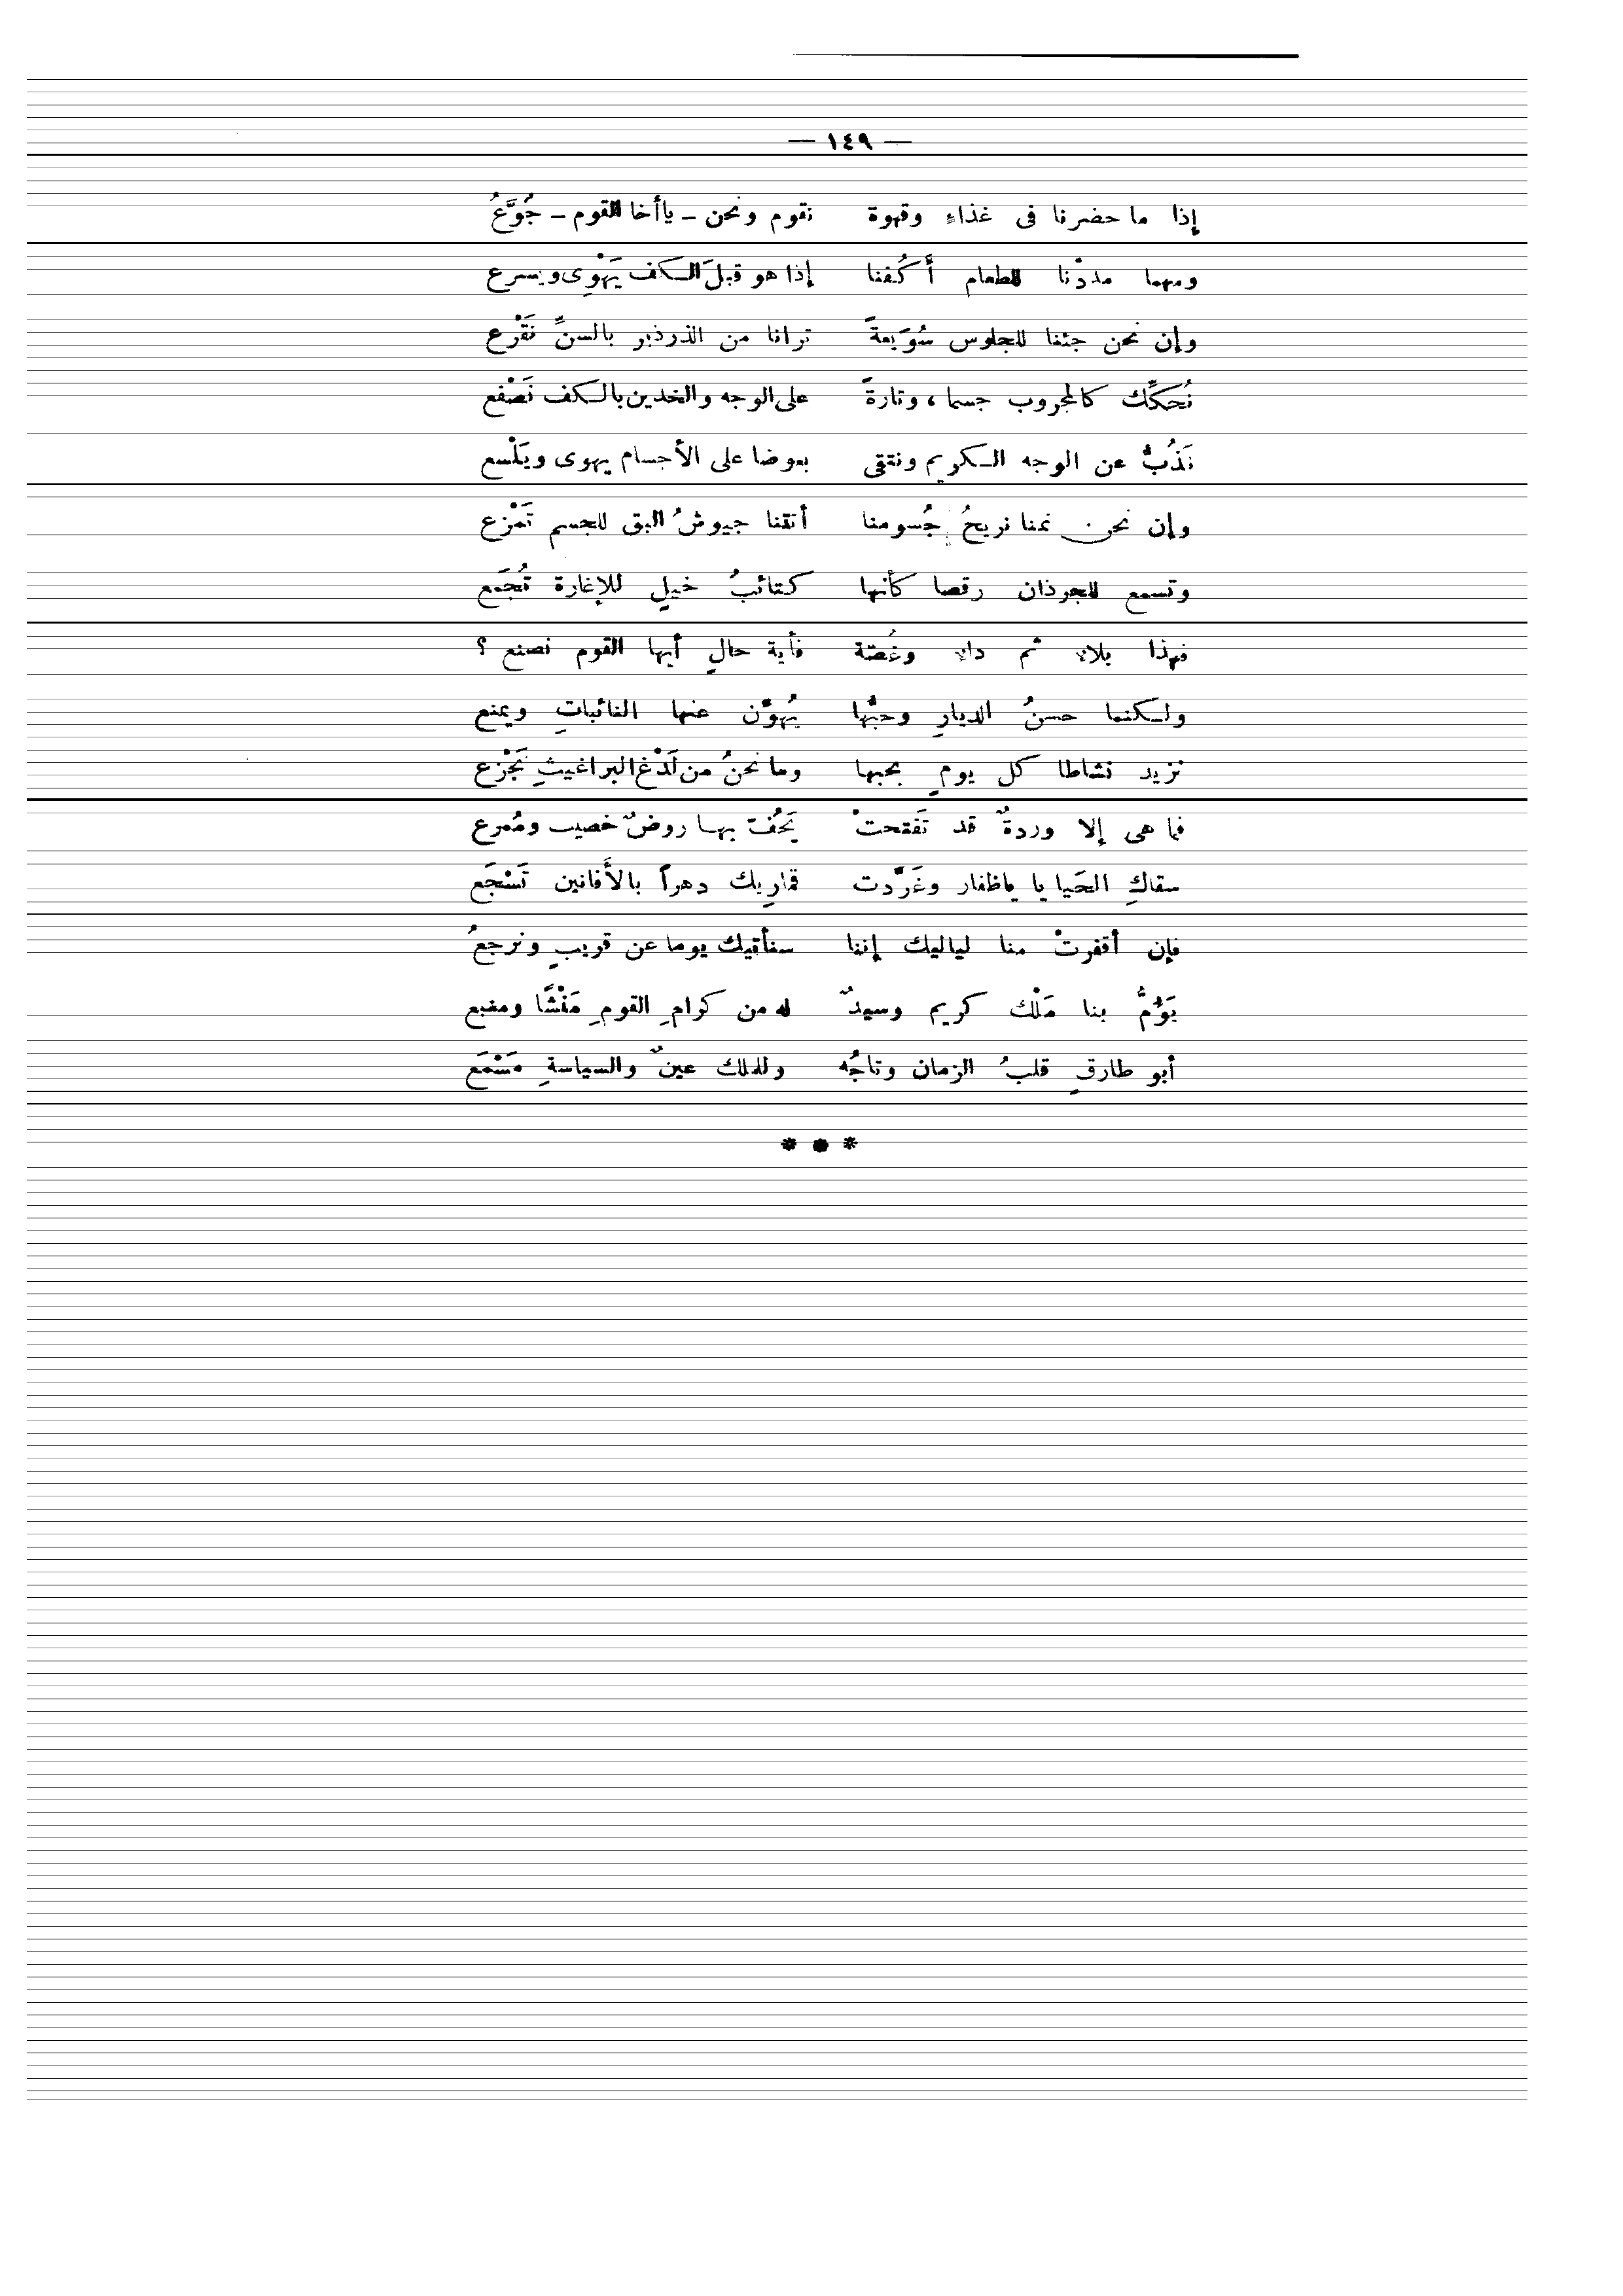 — ١٤٩ —
إذا ما حضرنا فى غذاء وقهوة نقوم ونحن – يا أخا القوم – جُوَّعُ
ومهما مددْنا للطعام أَكُفنا إذا هو قبلَ الكف يَهْوِى ويسرع
وإن نحن جئنا للجلوس سُوَيعةً ترانا من الذرذبر بالسنِّ نَقْرع
نُحكِّك كالمجروب جسما ، وتارةً على الوجه والخدين بالكف نَصْفع
نَذُبُّ عن الوجه الكريم ونتقى بعوضا على الأجسام يهوى ويَلْسع
وإن نحن نمنا نريحُ جُسومنا أتتنا جيوشُ البق للجسم تَمْزع
وتسمع للجرذان رقصا كأنها كتائبُ خيلٍ للإغارة تُجمَع
فهذا بلاء ثم داء وغُصّة فأية حالٍ أيها القوم نصنع ؟
ولكنما حسنُ الديارِ وحبُّها يُهوِّن عنها النائباتِ ويمنع
نزيد نشاطا كل يومٍ بحبها وما نحنُ من لَدْغ البراغيثِ نَجْزع
فما هى إلا وردةٌ قد تَفتحتْ يَحُفّ بها روضٌ خصيب ومُمرع
سقاكِ الحَيا يا ياظفار وغَرَّدت قمارِيك دهراً بالأَفانين تَسْجَع
فإن أقفرتْ منا لياليك إننا سنأتيك يوما عن قريبٍ ونرجعُ
يَؤُمُّ بنا مَلْك كريم وسيدٌ له من كرامِ القومِ مَنْشًا ومنبع
أبو طارقٍ قلبُ الزمان وتاجُه وللملك عينٌ والسياسةِ مَسْمَع
* * *